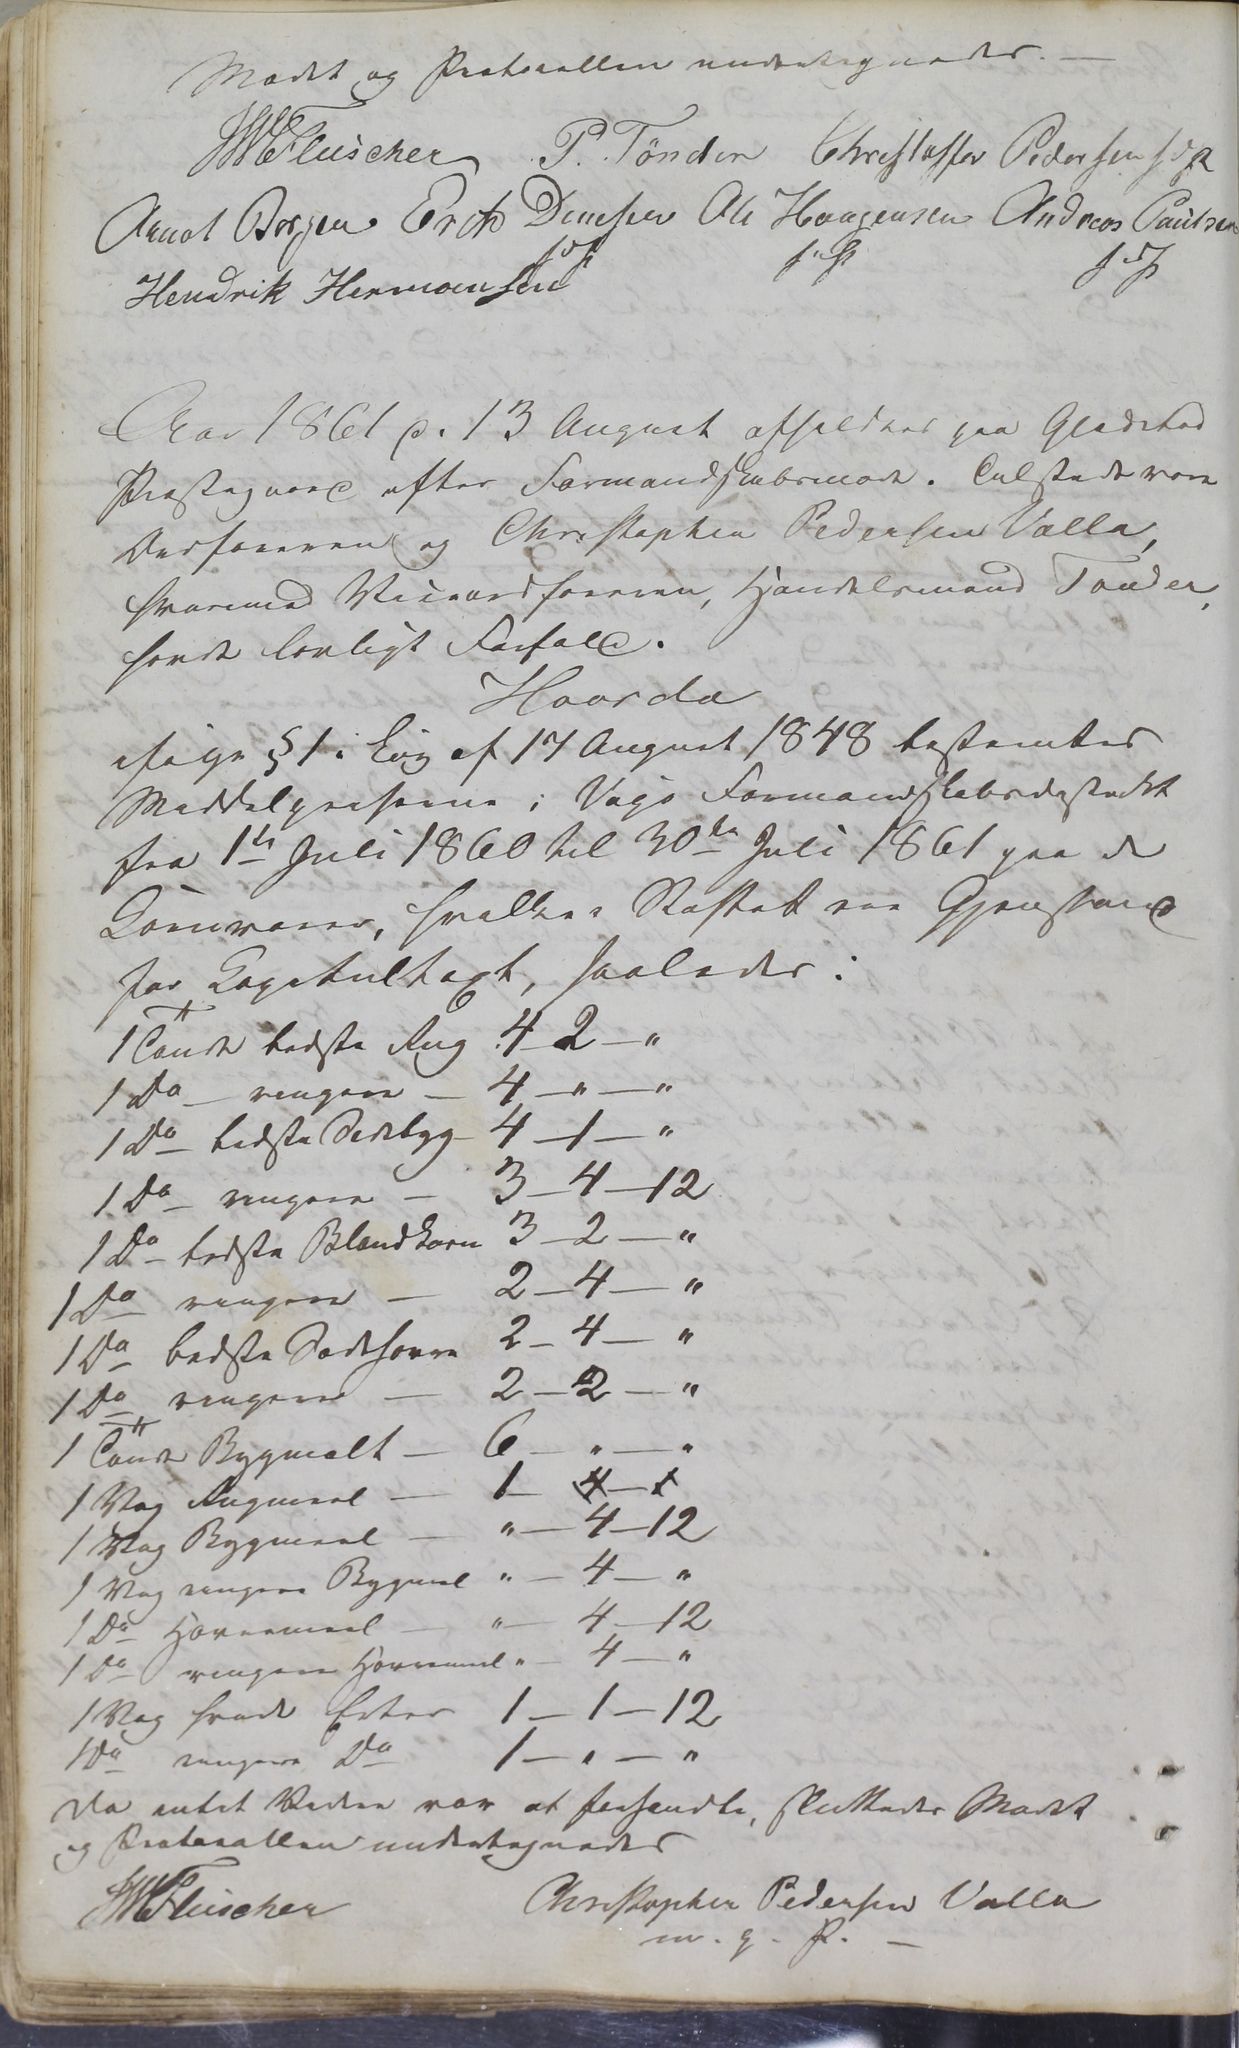 Mødet og Protocollen undertegnedes. —
JWFleischer P. Tönder Christoffer Pedersen
Arnot Borgen Erik Ole Haagensen Andreas Paulsen
Hendrik Hermansen
Aar 1861 d. 13 August afholdtes paa Gladstad
Præstegaard efter Formandskabsmøde. Tilstede vare
Ordføreren og Christopher Pedersen Valla,
hvorimod Viceordføreren, Handelsmand Tønder,
havde lovligt Forfald.
Hvorda
ifølge § 1 i Lov af 17 August 1848 bestemtes
Middelpriserne i Vegø Formandskabsdistrikt
fra 1ste Juli 1860 til 30te Juli 1861 paa de
Kornvarer, hvilke i Stiftet ere Gjenstand
for Capitultaxt, saaledes:
1 Tønde bedste Rug 4 – 2 – "
1 Do – ringere – 4 – " – "
1 Do – bedste Sædebyg 4 – 1 – "
1 Do – ringere – 3 – 4 – 12
1 Do – bedste Blandkorn 3 – 2 – "
1 Do ringere – 2 – 4 – "
1 Do bedste Sædehavre 2 – 4 – "
1 Do ringere – 2 – 2 – "
1 Tønde Bygmalt – 6 – " – "
1 Vog Rugmeel – 1 –
1 Vog Bygmeel – " – 4 – 12
1 Vog ringere Bygmeel " – 4 – "
1 Do Havremeel – " – 4 – 12
1 Do ringere Havremeel " – 4 – "
1 Vog hvide Erter 1 – 1 – 12
1 Do ringere Do 1 – " – "
Da intet Videre var at forhandle, sluttedes Mødet
og Protocollen undertegnedes
JWFleischer Christopher Pedersen Valla
m. p. P. –